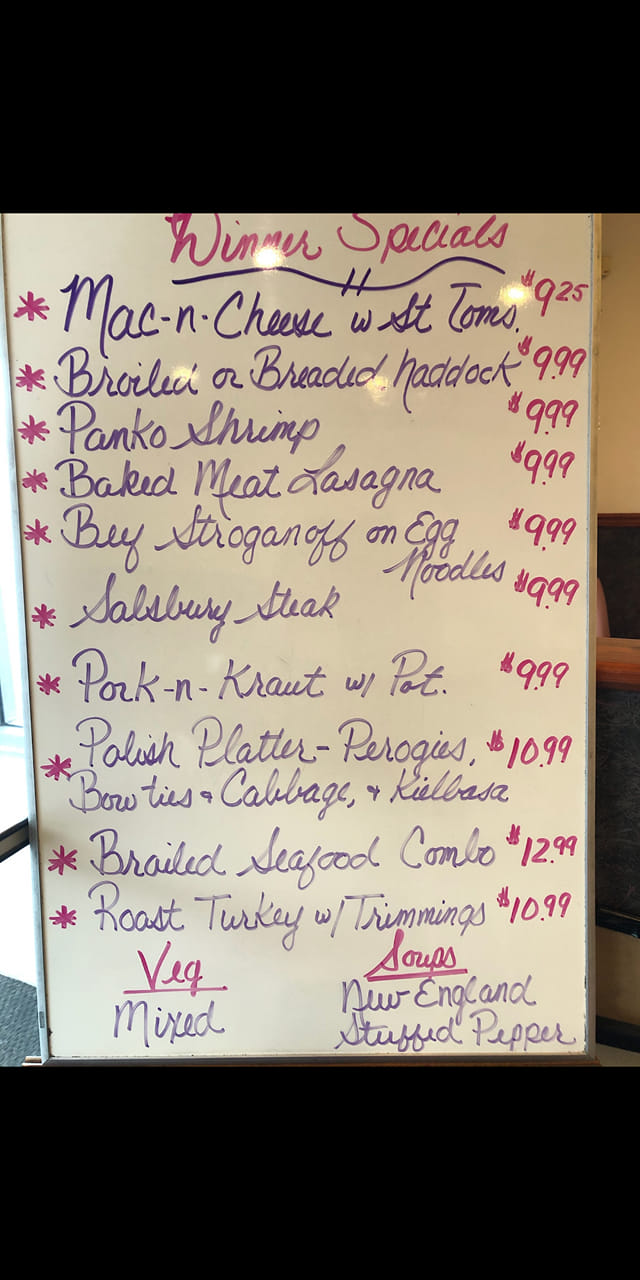 Winner Specials
* Mac-n-Cheese w St Toms. $9.25
* Broiled or Breaded Haddock $9.99
* Panko Shrimp $9.99
* Baked Meat Lasagna $9.99
* Beef Stroganoff on Egg $9.99
Noodles
* Salsbury Steak $9.99
* Pork-n-Kraut w/ Pot. $9.99
* Polish Platter - Perogies, $10.99
Bow ties & Cabbage, & Kielbasa
* Brailed Seafood Combo $12.99
* Roast Turkey w/ Trimmings $10.99
Veg Soups
Mixed New England
Stuffed Pepper